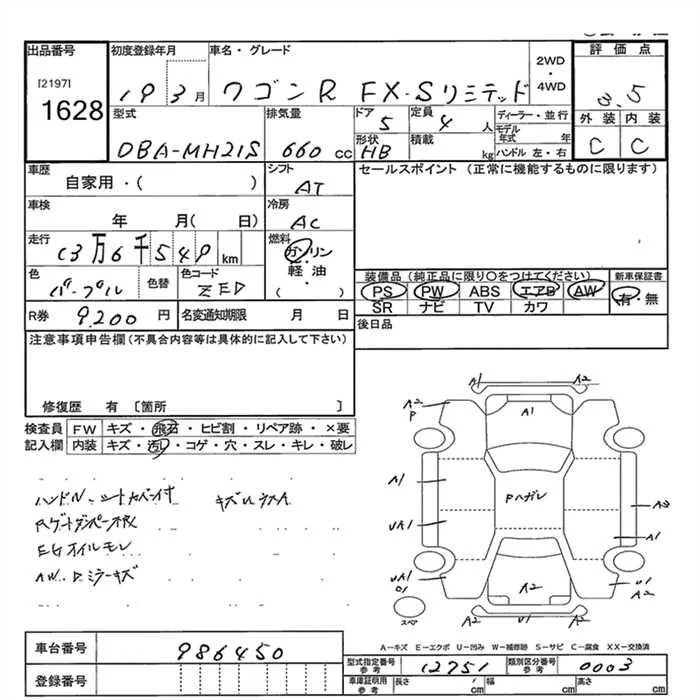 出品番号
[2197]
1628
初度登録年月
19 3 月
車名・グレード
ワゴンR FX-Sリミテッド
2WD
・
4WD
評価点
3.5
外装 内装
C C
型式
DBA-MH21S
排気量
660 cc
ドア
5
形状
HB
定員
4 人
積載
kg
ディーラー・並行
モデル年式 年
ハンドル 左・右
車歴
自家用・( )
シフト
AT
セールスポイント (正常に機能するものに限ります)
車検
年 月( 日)
冷房
AC
走行
13万6千549 km
燃料
ガソリン
・
軽油
・
( )
色
パープル
色替
色コード
ZED
装備品 (純正品に限り○をつけてください)
PS PW ABS エアB AW
SR ナビ TV カワ
新車保証書
有・無
R券 9,200 円
名変通知期限 月 日
後日品
注意事項申告欄 (不具合内容等は具体的に記入して下さい)
修復歴 有 〔箇所 〕
検査員
記入欄
FW キズ・飛石・ヒビ割・リペア跡・×要
内装 キズ・汚レ・コゲ・穴・スレ・キレ・破レ
ハンドル シートカバー付 キズ
EGオイルモレ
AW. ミラーキズ
A1 A2
A2
P
A1
A2
A1
Pハガレ
A3
UA1
A1
UA1
A2
U1
A2
A2
スペア
A-キズ E-エクボ U-凹み W-補修跡 S-サビ C-腐食 XX-交換済
車台番号 986450
登録番号
型式指定番号
参考
12751
類別区分番号
参考
0003
車庫証明用
参考
長さ cm 幅 cm 高さ cm